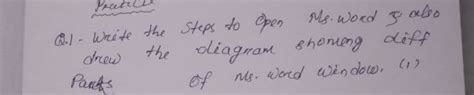 Practice
Q.1- Write the Steps to Open Ms. Word & also
drew the diagram showing diff
Parts of Ms. Word window. (1)